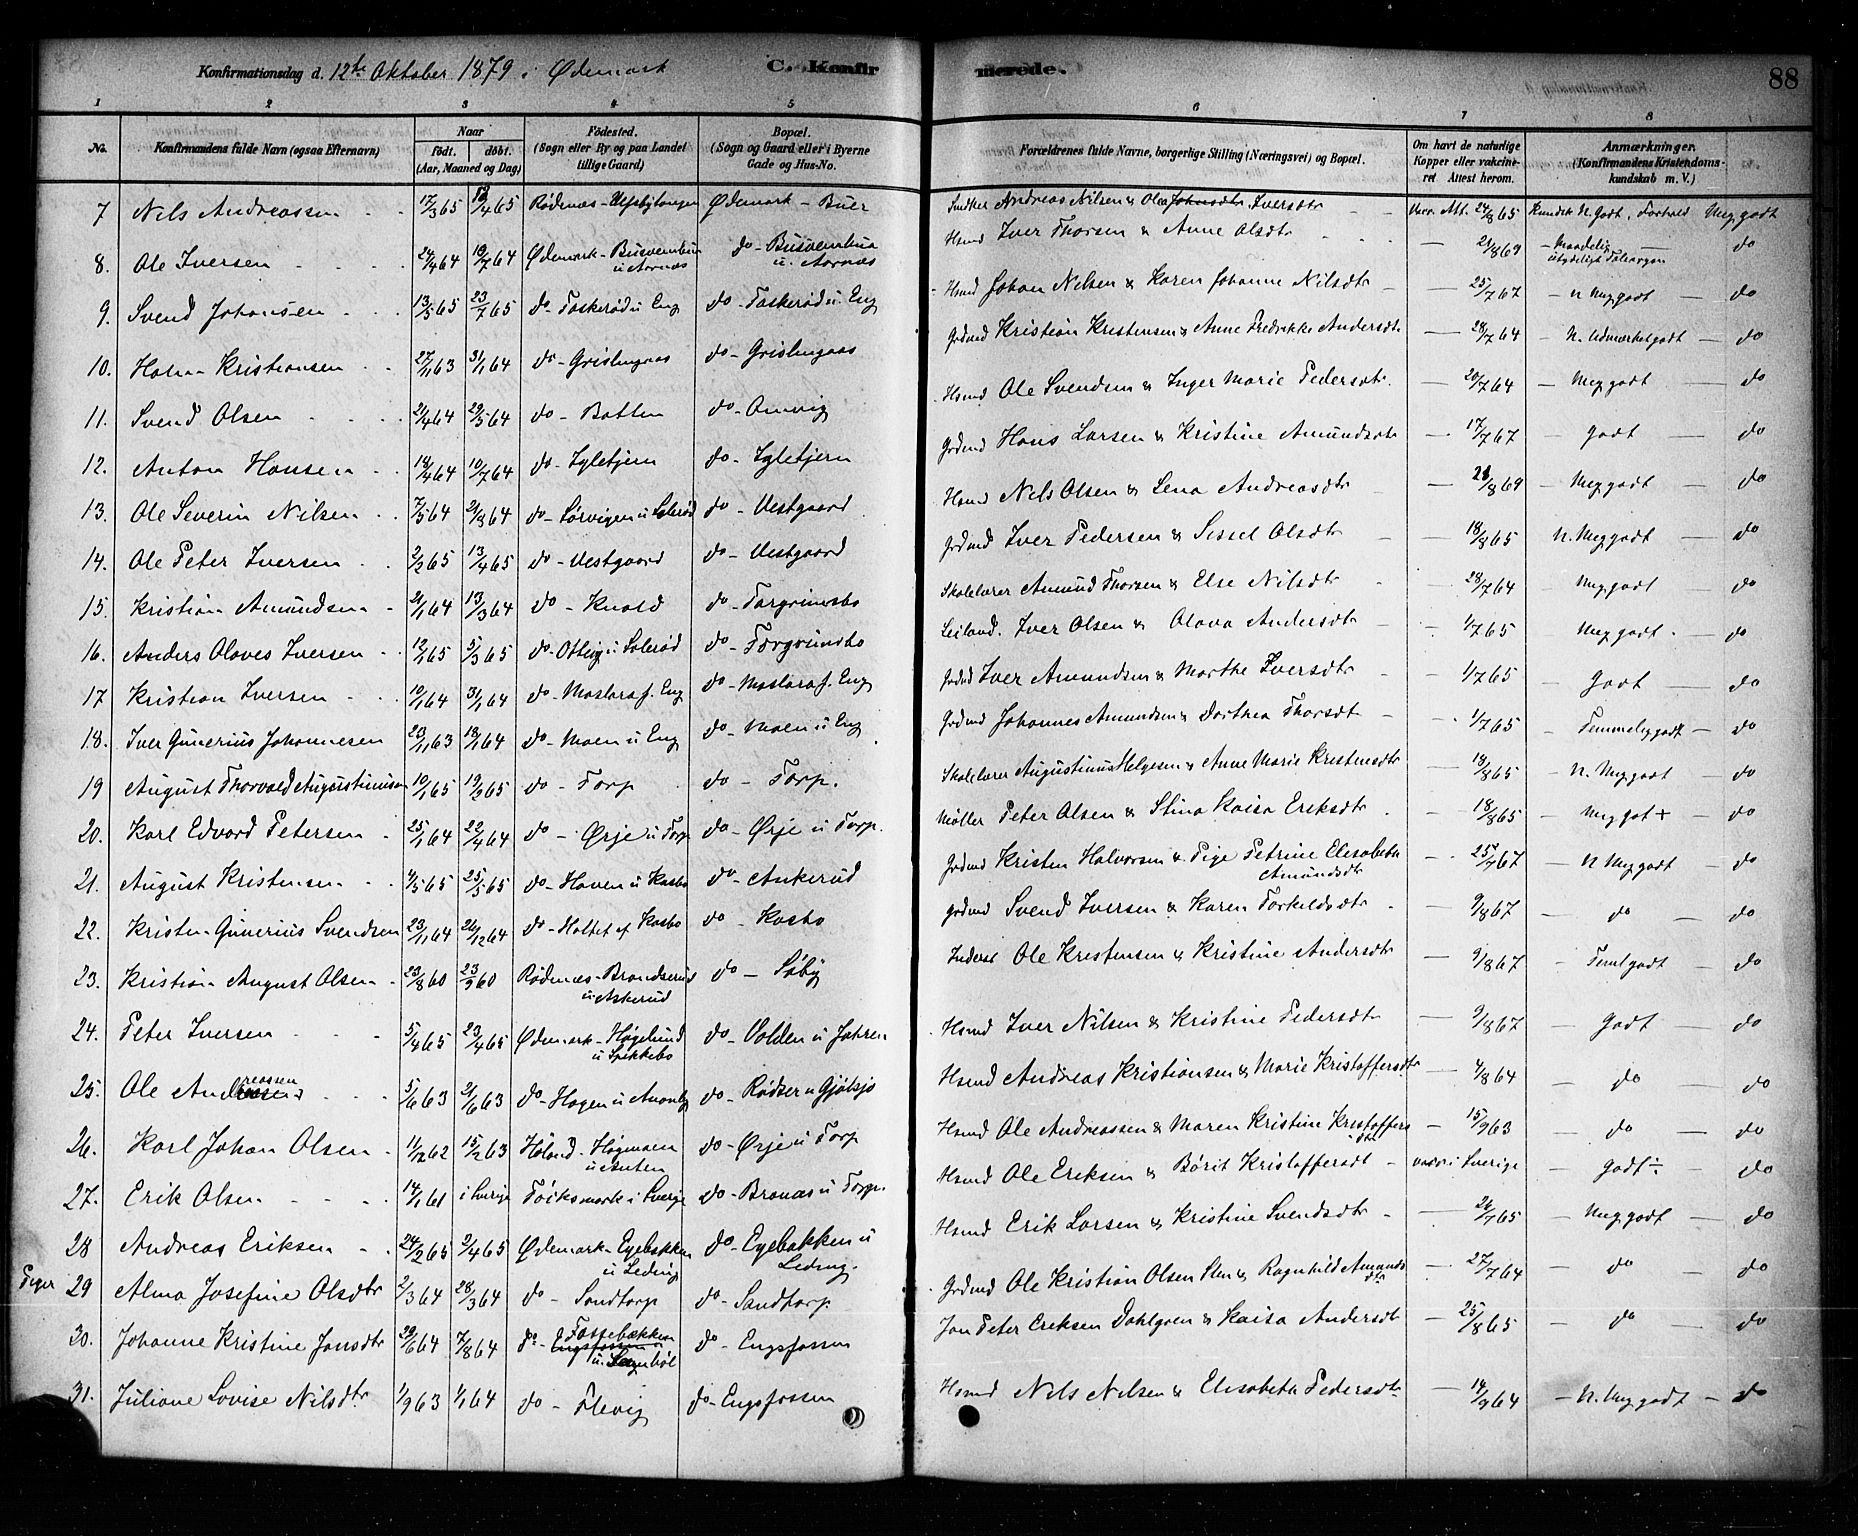 Konfirmationsdag d. 12te Oktober 1879 i Ødemark C. Konfirmerede. 88
1 2 3 4 5 6 7 8
No. Konfirmandens fulde Navn (ogsaa Efternavn) Naar født. døbt. (Aar, Maaned og Dag) Fødested. (Sogn eller By og paa Landet tillige Gaard) Bopæl. (Sogn og Gaard eller i Byerne Gade og Hus-No. Forældrenes fulde Navne, borgerlige Stilling (Næringsvei) og Bopæl. Om havt de naturlige Kopper eller vakcineret Attest herom. Anmærkninger. (Konfirmandens Kristendomskundskab m. V.)
7 Nils Andreassen 17/3 65 /4 65 Rødenæs - Ødemark - Buer Andreas Nilsen & Olea Johnsdtr Iversdtr Vacc. Att. 24/8 65 Kundsk. N. Godt. Forhold Megg godt
8. Ole Iversen 24/4 64 10/7 64 Ødemark - Busvembua u Aarnæs do - Busvembua u. Aarnæs Hsmd Iver Thorsen & Anne Olsdtr — 21/8 69 — Maadelig — do
9. Svend Johansen 13/5 65 23/7 65 do - Taskerød u Eng do - Taskerød u Eng Hsmd Johan Nilsen & Karen Johanne Nilsdtr — 25/7 67 — N Meggodt — do
10. Hans Kristiansen 27/11 63 31/1 64 do - Grislingaas do - Grislingaas Grdmd Kristian Kristensen & Anne Fredrikke Andersdtr — 28/7 64 — N. Udmærketgodt — do
11. Svend Olsen 2/4 64 29/5 64 do - Botten do - Amvig Hsmd Ole Svendsen & Inger Marie Pedersdtr. — 20/7 64 — Meggodt — do
12. Anton Hansen 18/4 64 10/7 64 do - Igletjern do - Igletjern Grdmd Hans Larsen & Kristine Amundsdtr — 17/7 67 — Godt — do
13. Ole Severin Nilsen 7/5 64 21/8 64 do - Sørvigen u Solerød do - Vestgaard Hsmd Nils Olsen & Lena Andreasdtr — 21/8 69 — Meggodt — do
14. Ole Peter Iversen 2/2 65 13/4 65 do - Vestgaard do - Vestgaard Grdmd Iver Pedersen & Sissel Olsdtr — 18/8 65 N. Meggodt — do
15. Kristian Amundsen 21/1 64 13/3 64 do - Knold do - Torgrimsbo Skolelærer Amund Thorsen & Else Nilsdtr — 28/7 64 — Meggodt do
16. Anders Olaves Iversen 12/1 65 5/3 65 do - Otteig u Solerød do - Torgrimsbo Leiland. Iver Olsen & Olava Andersdtr — 1/7 65 Meggodt. do
17 Kristian Iversen 10/1 64 31/1 64 do - Mostaraf. Eng do - Mostaraf. Eng Grdmd Iver Amundsen & Marthe Iversdtr — 1/7 65 — Godt — do
18. Iver Gunerius Johannesen 23/11 63 18/1 64 do - Moen u Eng do - Moen u Eng Grdmd Johannes Amundsen & Dorthea Thorsdtr — 1/7 65 — Temmeliggodt — do
19 August Thorvald Augustinusen 10/1 65 19/2 65 do - Torp do - Torp. Skolelærer Augustinus Helgesen & Anne Marie Kristensdtr — 18/8 65 — N. Meggodt — do
20. Karl Edvard Petersen 25/1 64 22/4 64 do - Ørje u Torp do - Ørje u Torp. Møller Peter Olsen & Stina Kaisa Eriksdtr — 18/8 65 — Meggodt + — do
21. August Kristensen 4/5 65 25/5 65 do - Haven u Kasbo do - Ankerud Grdmd Kristen Halvorsen & Pige Petrine Elisabeth Amundsdtr — 25/7 67 — N Meggodt — do
22. Kristen Gunerius Svendsen 23/11 64 26/12 64 do - Holtet af Kasbo do - Kasbo Grdmd Svend Iversen & Karen Torkildsdtr — 9/8 67 — do — do
23. Kristian August Olsen 23/8 60 23/9 60 Rødenæs - Brandserud u Askerud do - Søby Inderst Ole Kristensen & Kristine Andersdtr — 9/8 67 — Temlgodt — do
24. Peter Iversen 5/4 65 23/4 65 Ødemark - Høgelund u Spikkebo do - Volden u Jahren Hsmd Iver Nilsen & Kristine Pedersdtr — 9/8 67 — Godt — do
25. Ole Andreassen 5/6 63 21/6 63 do - Hagen u do - Rødser u Gjølsjø Hsmd Andreas Kristiansen & Marie Kristoffersdtr — 4/8 64 — do do
26. Karl Johan Olsen 11/12 62 15/2 63 Høland - Høgmoen do - Ørje u Torp Hsmd Ole Andreassen & Maren Kristine Kristoffersdtr — 15/9 63 — do — do
27. Erik Olsen 14/1 61 i Sverige Töcksmark i Sverige do - Bronæs u Torp. Hsmd Ole Eriksen & Börit Kristoffersdt — vacc. i Sverige — Godt ÷ — do
28 Andreas Eriksen 24/2 65 2/4 65 Ødemark - Egebakken u Leding do - Egebakken u Leding. Hsmd Erik Larsen & Kristine Svendsdtr — 26/7 65 — Meggodt — do
Piger 29 Alma Josefine Olsdtr 2/3 64 28/3 64 do - Sandtorp do - Sandtorp Grdmd Ole Kristian Olsen & Ragnhild Amundsdtr — 27/7 64 — do — do
30. Johanne Kristine Jansdtr 29/6 64 7/8 64 do - Engsfossen Fossebækken u. do - Engsfossen Jan Peter Eriksen Dahlgren & Kaisa Andersdtr — 25/8 65 — do — do
31. Juliane Lovise Nilsdtr 1/9 63 1/1 64 do - Flevig do - Engsfossen Hsmd Nils Nilsen & Elisabeth Pedersdtr — 14/9 64 — N. Meggodt — do